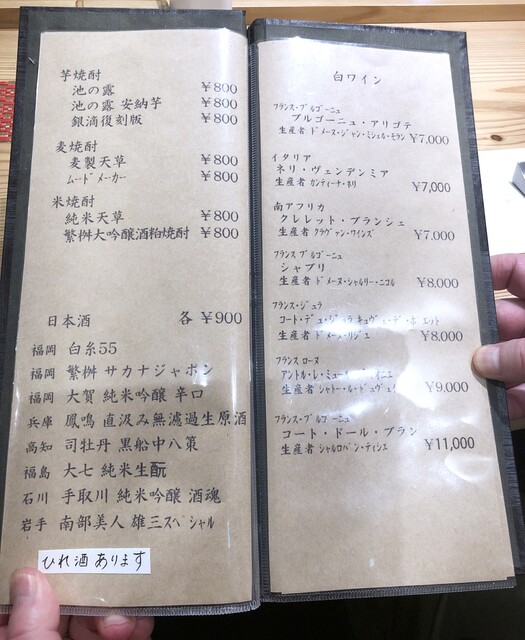 芋焼酎
池の露 ¥800
池の露 安納芋 ¥800
銀滴復刻版 ¥800
麦焼酎
麦製天草 ¥800
ムードメーカー ¥800
米焼酎
純米天草 ¥800
繁桝大吟醸酒粕焼酎 ¥800
日本酒 各 ¥900
福岡 白糸55
福岡 繁桝 サカナジャポン
福岡 大賀 純米吟醸 辛口
兵庫 鳳鳴 直汲み無濾過生原酒
高知 司牡丹 黒船中八策
福島 大七 純米生酛
石川 手取川 純米吟醸 酒魂
岩手 南部美人 雄三スペシャル
ひれ酒 あります
白ワイン
フランス・ブルゴーニュ
ブルゴーニュ・アリゴテ
生産者 ドメーヌ・ジャン・ミシェル・モラン ¥7,000
イタリア
ネリ・ヴェンデンミア
生産者 カンティーナ・ホリ ¥7,000
南アフリカ
クレレット・ブランシェ
生産者 クラヴァン・ワインズ ¥7,000
フランス ブルゴーニュ
シャブリ
生産者 ドメーヌ・シャルリー・ニコル ¥8,000
フランス・ジュラ
コート・デュ・ジュラ キュヴェ・デ・
生産者 ドメーヌ・リジェ ¥8,000
フランス ローヌ
アントル・レ・ミュー
生産者 シャトー・ル・デュヴェ ¥9,000
フランス・ブルゴーニュ
コート・ドール・ブラン
生産者 シャルロパン・ティシエ ¥11,000